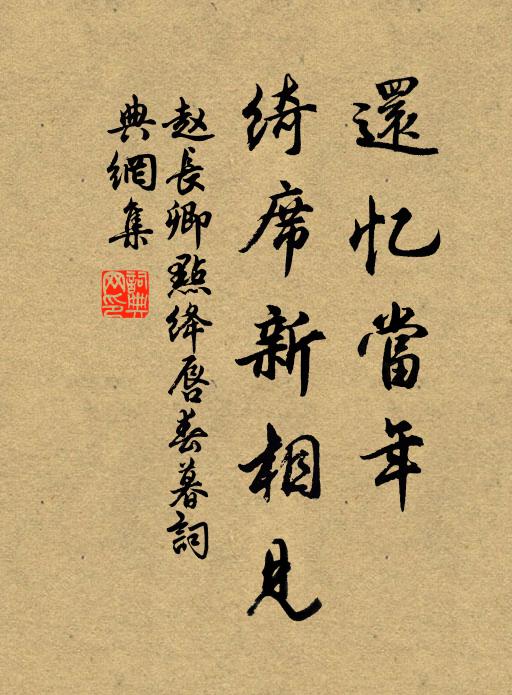 還忆當年
綺席新相見
赵長卿點绛唇春暮詞
典網集
詞典网印